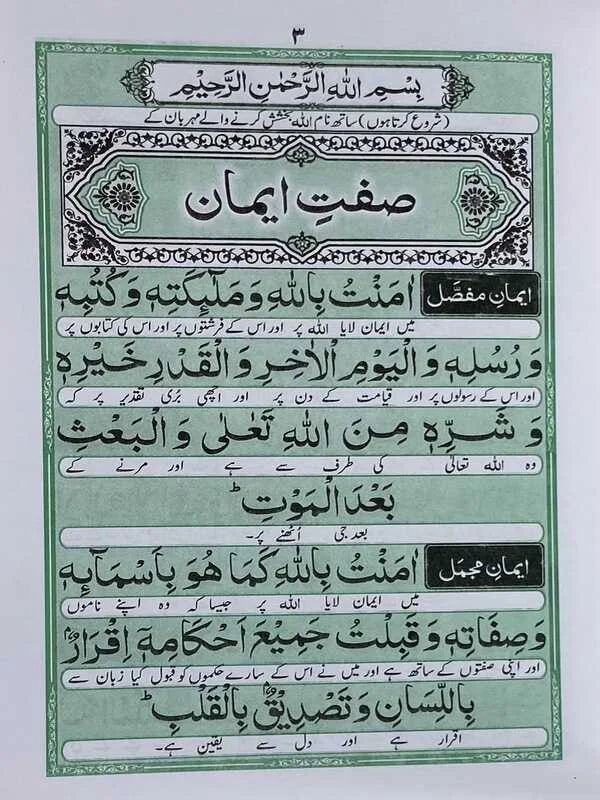 ۳
بِسْمِ اللهِ الرَّحْمٰنِ الرَّحِيْمِ
(شروع کرتا ہوں) ساتھ نام اللہ بخشش کرنے والے مہربان کے
صفتِ ایمان
ایمانِ مفصّل اٰمَنْتُ بِاللهِ وَمَلٰٓئِكَتِهٖ وَكُتُبِهٖ
میں ایمان لایا اللہ پر اور اس کے فرشتوں پر اور اس کی کتابوں پر
وَرُسُلِهٖ وَالْيَوْمِ الْاٰخِرِ وَالْقَدْرِ خَيْرِهٖ
اور اس کے رسولوں پر اور قیامت کے دن پر اور اچھی بُری تقدیر پر کہ
وَشَرِّهٖ مِنَ اللهِ تَعَالٰى وَالْبَعْثِ
وہ اللہ تعالیٰ کی طرف سے ہے اور مرنے کے
بَعْدَ الْمَوْتِ ؕ
بعد جی اُٹھنے پر۔
ایمانِ مجمل اٰمَنْتُ بِاللهِ كَمَا هُوَ بِاَسْمَآئِهٖ
میں ایمان لایا اللہ پر جیسا کہ وہ اپنے ناموں
وَصِفَاتِهٖ وَقَبِلْتُ جَمِيْعَ اَحْكَامِهٖٓ اِقْرَارٌۢ
اور اپنی صفتوں کے ساتھ ہے اور میں نے اس کے سارے حکموں کو قبول کیا زبان سے
بِاللِّسَانِ وَتَصْدِيْقٌۢ بِالْقَلْبِ ؕ
اقرار ہے اور دل سے یقین ہے۔